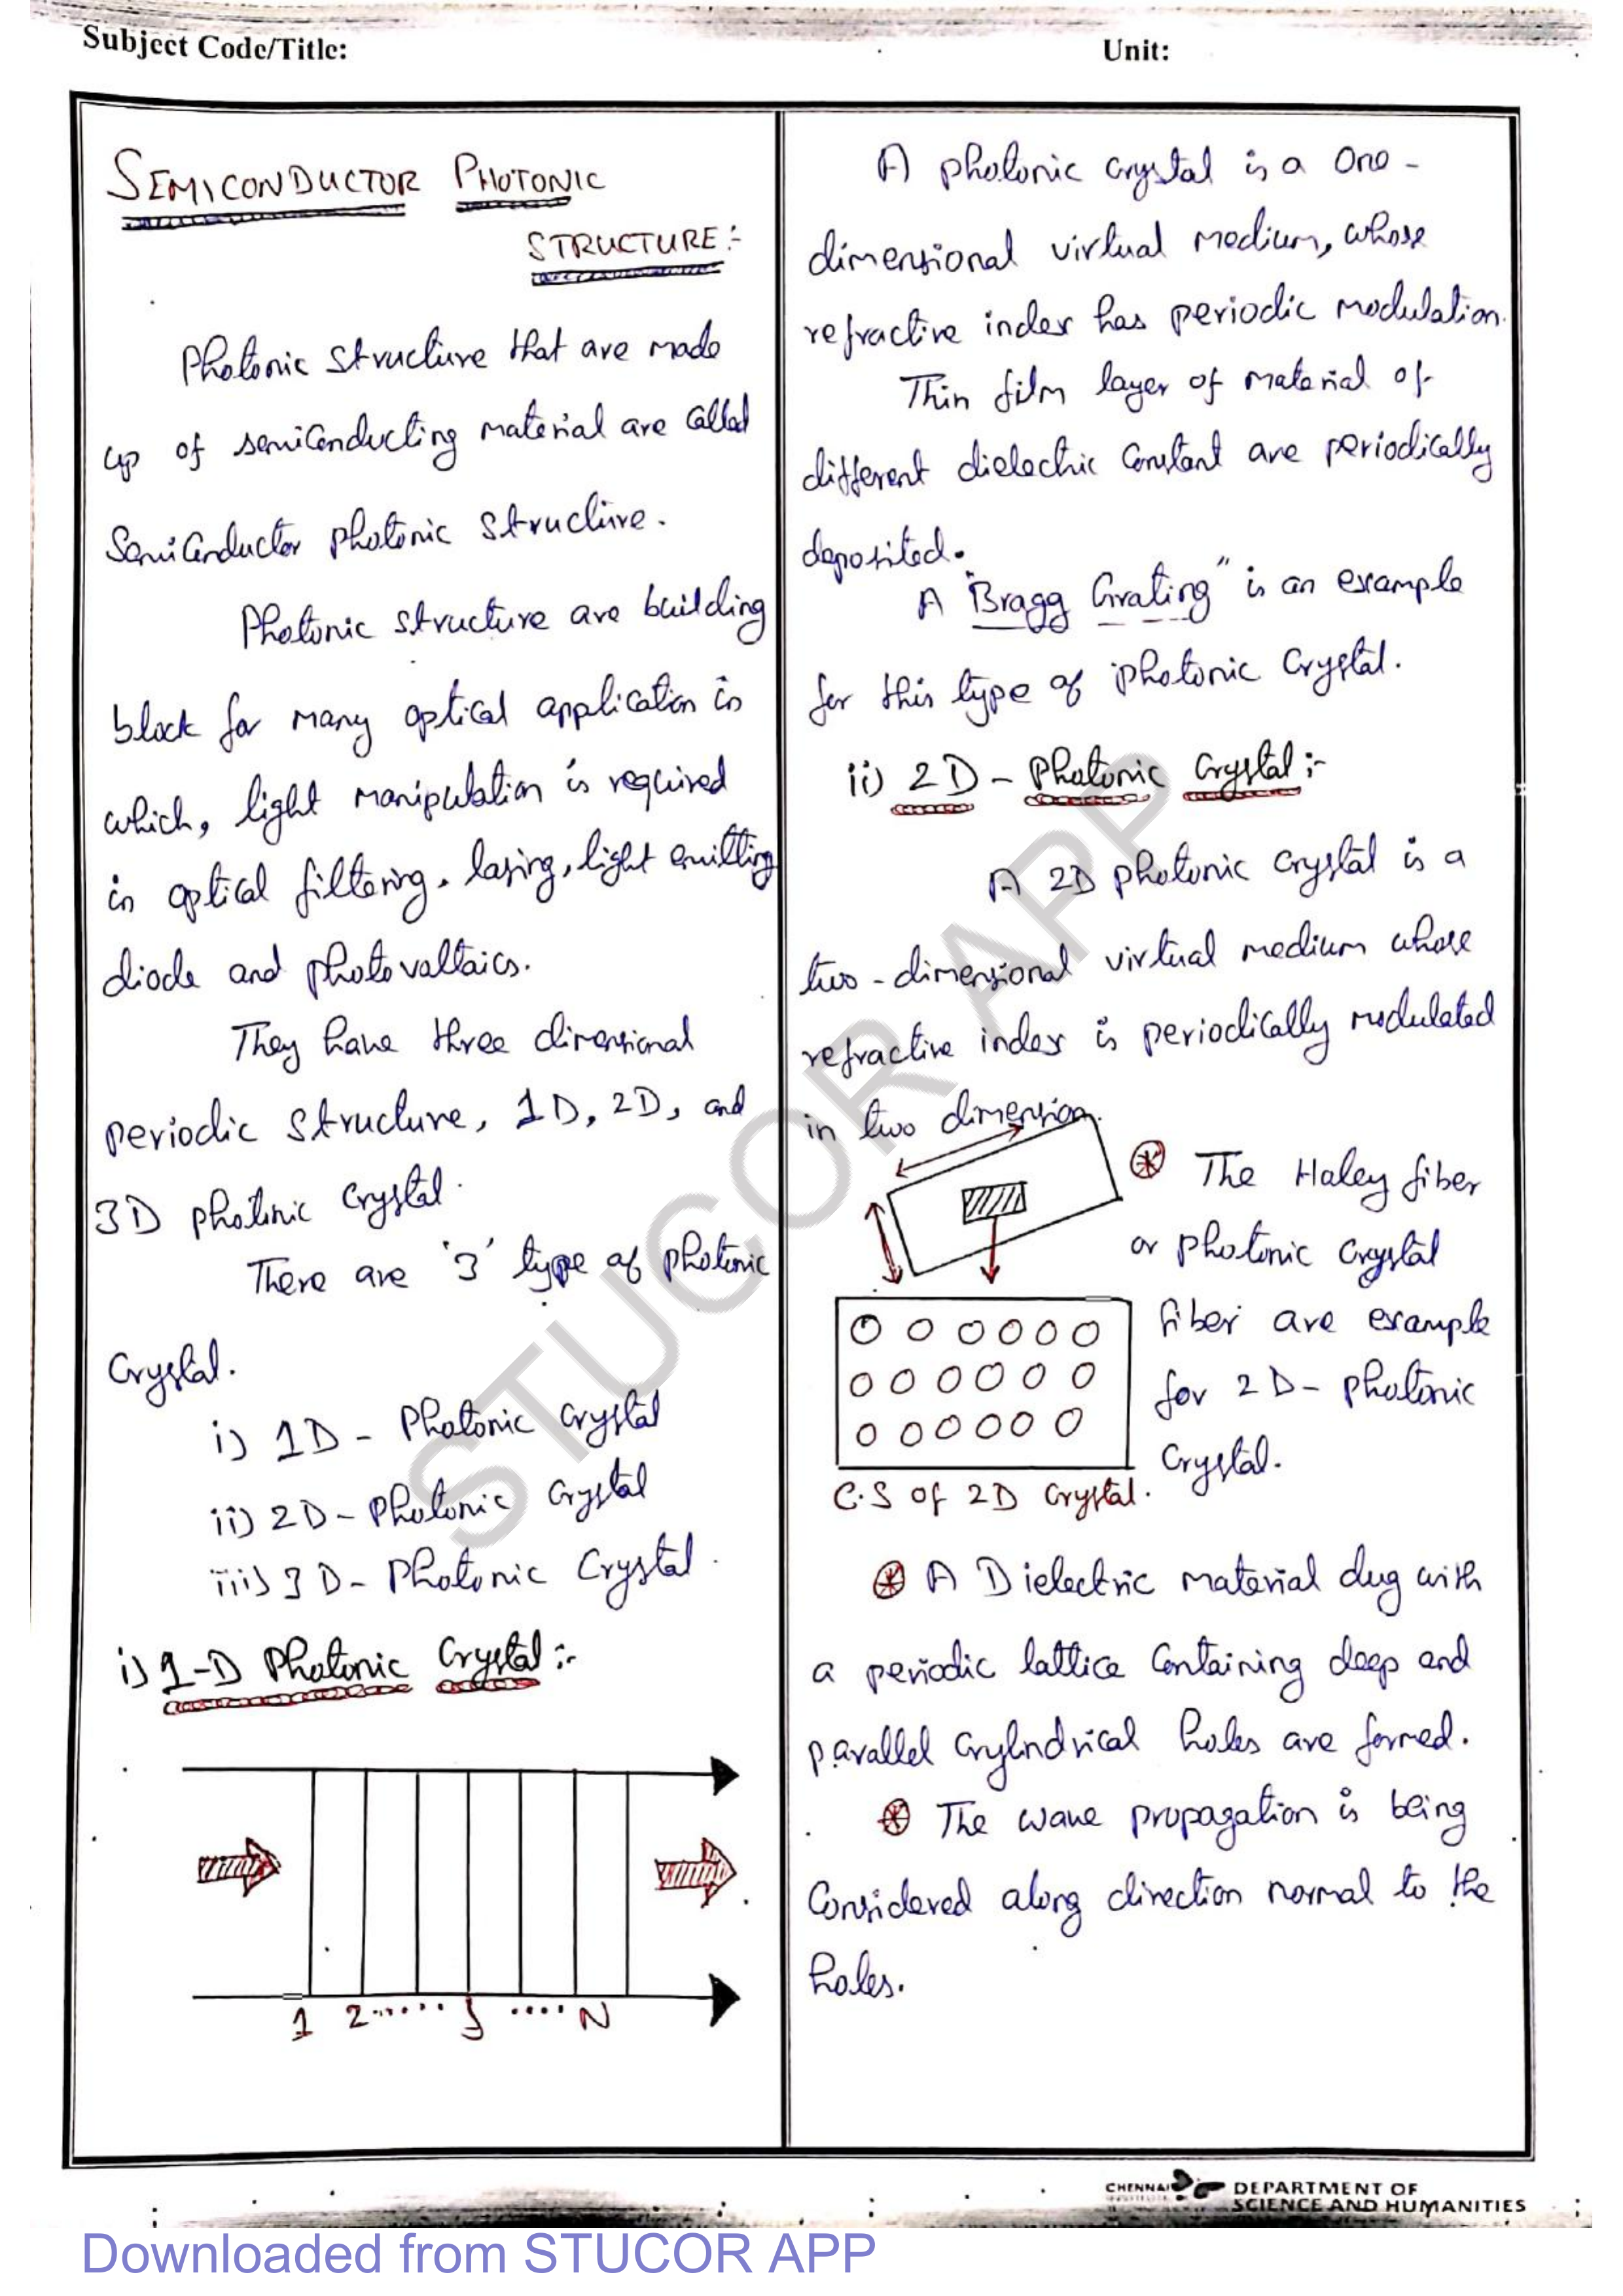 Subject Code/Title:
Unit:
SEMICONDUCTOR PHOTONIC
STRUCTURE:-
Photonic structure that are made
up of semiconducting material are called
Semiconductor photonic structure.
Photonic structure are building
block for many optical application in
which, light manipulation is required
in optical filtering, lasing, light emitting
diode and photovoltaics.
They have three dimensional
periodic structure, 1D, 2D, and
3D photonic crystal.
There are '3' type of photonic
Crystal.
i) 1D - Photonic crystal
ii) 2D - Photonic crystal
iii) 3D - Photonic Crystal.
i) 1-D Photonic Crystal :-
1 2...... j .... N
A photonic crystal is a one-
dimensional virtual medium, whose
refractive index has periodic modulation.
Thin film layer of material of
different dielectric constant are periodically
deposited.
A "Bragg Grating" is an example
for this type of photonic crystal.
ii) 2D - Photonic Crystal :-
A 2D photonic crystal is a
two-dimensional virtual medium whose
refractive index is periodically modulated
in two dimension.
The Haley fiber
or photonic crystal
fiber are example
for 2D - photonic
Crystal.
C.S of 2D Crystal.
A Dielectric material dug with
a periodic lattice containing deep and
parallel crylindrical holes are formed.
The wave propagation is being
Considered along direction normal to the
holes.
STUCOR APP
CHENNAI
DEPARTMENT OF
SCIENCE AND HUMANITIES
Downloaded from STUCOR APP